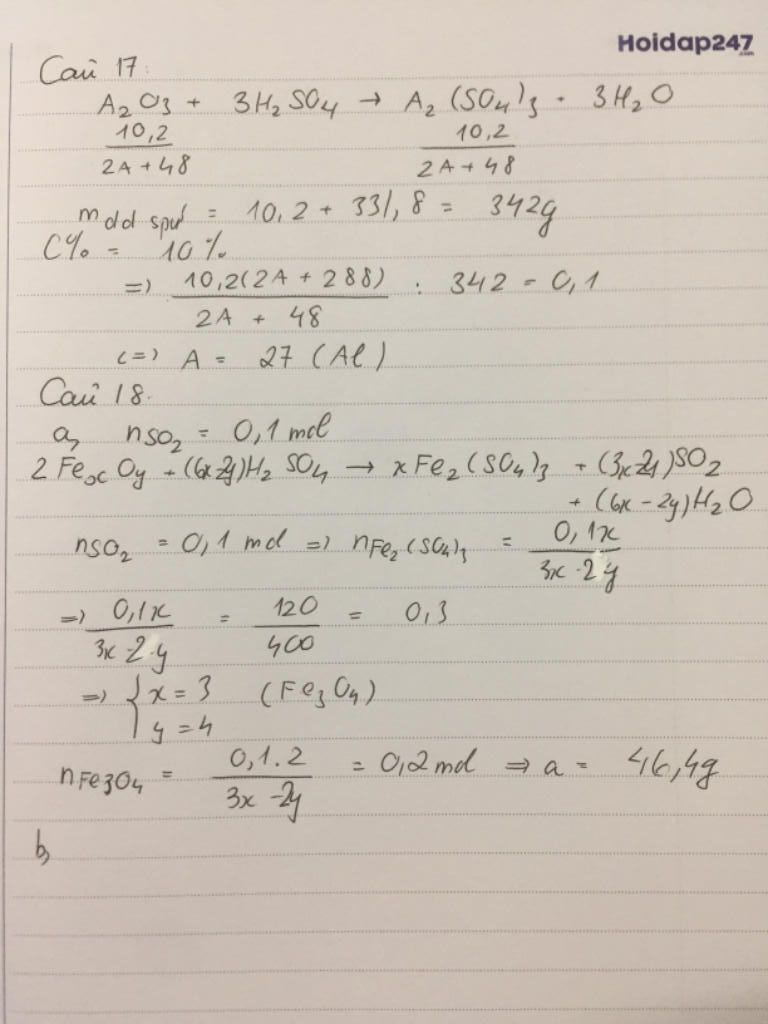 Hoidap247
.com
Câu 17:
A₂O₃ + 3H₂SO₄ → A₂(SO₄)₃ + 3H₂O
10,2 / (2A + 48)    10,2 / (2A + 48)
m dd spư = 10,2 + 331,8 = 342g
C% = 10%
=> 10,2(2A + 288) / (2A + 48) : 342 = 0,1
<=> A = 27 (Al)
Câu 18.
a, nSO₂ = 0,1 mol
2FeₓOy + (6x-2y)H₂SO₄ → xFe₂(SO₄)₃ + (3x-2y)SO₂
+ (6x - 2y)H₂O
nSO₂ = 0,1 mol => nFe₂(SO₄)₃ = 0,1x / (3x - 2y)
=> 0,1x / (3x - 2y) = 120 / 400 = 0,3
=> { x = 3 (Fe₃O₄)
y = 4
nFe₃O₄ = 0,1.2 / (3x - 2y) = 0,2 mol => a = 46,4g
b,